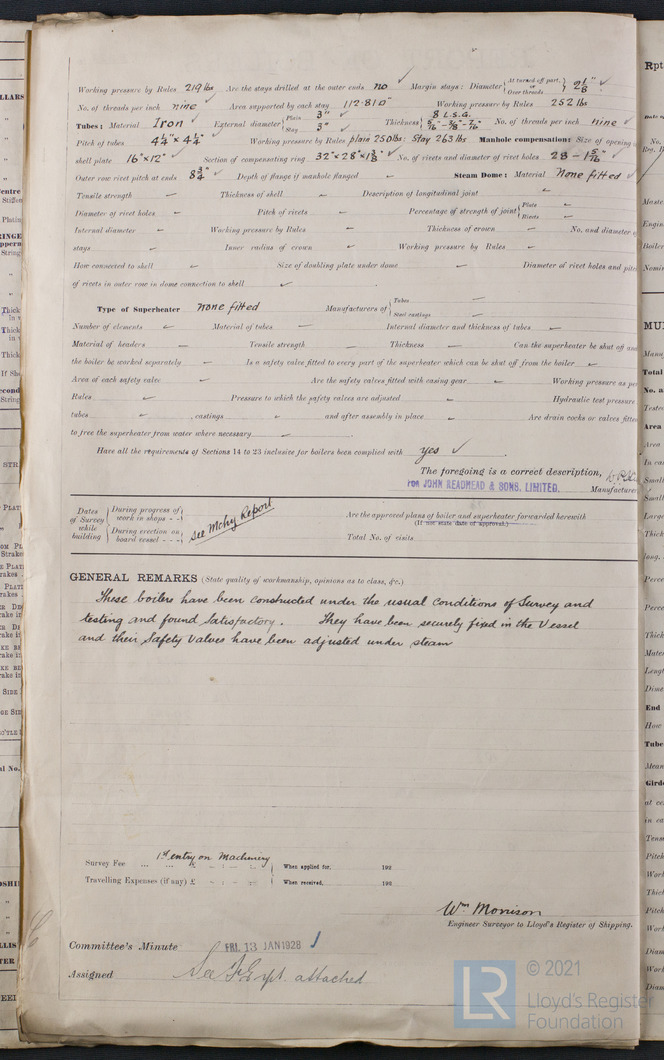 Working pressure by Rules 219 lbs Are the stays drilled at the outer ends no ✓ Margin stays: Diameter { At turned off part, or Over threads } 2 1/8" ✓
No. of threads per inch nine ✓ Area supported by each stay 112.81□" Working pressure by Rules 252 lbs
Tubes: Material Iron ✓ External diameter { Plain 3" ✓ Stay 3" Thickness { 8 L.S.G. 5/16" - 3/8" - 7/16" ✓ No. of threads per inch nine ✓
Pitch of tubes 4 1/4" × 4 1/4" ✓ Working pressure by Rules plain 250 lbs. Stay 263 lbs Manhole compensation: Size of opening
shell plate 16" × 12" ✓ Section of compensating ring 32" × 28" × 1 3/8" ✓ No. of rivets and diameter of rivet holes 28 - 1 5/16" ✓
Outer row rivet pitch at ends 8 3/4" ✓ Depth of flange if manhole flanged – Steam Dome: Material None fitted ✓
Tensile strength – Thickness of shell – Description of longitudinal joint –
Diameter of rivet holes – Pitch of rivets – Percentage of strength of joint { Plate – Rivets –
Internal diameter – Working pressure by Rules – Thickness of crown – No. and diameter
stays – Inner radius of crown – Working pressure by Rules –
How connected to shell – Size of doubling plate under dome – Diameter of rivet holes and pitch
of rivets in outer row in dome connection to shell –
Type of Superheater None fitted Manufacturers of { Tubes – Steel castings –
Number of elements – Material of tubes – Internal diameter and thickness of tubes –
Material of headers – Tensile strength – Thickness – Can the superheater be shut off and
the boiler be worked separately – Is a safety valve fitted to every part of the superheater which can be shut off from the boiler –
Area of each safety valve – Are the safety valves fitted with easing gear – Working pressure as per
Rules – Pressure to which the safety valves are adjusted – Hydraulic test pressure
tubes – , castings – and after assembly in place – Are drain cocks or valves fitted
to free the superheater from water where necessary –
Have all the requirements of Sections 14 to 23 inclusive for boilers been complied with yes ✓
The foregoing is a correct description,
FOR JOHN READHEAD & SONS, LIMITED. Manufacturer
Dates of Survey while building { During progress of work in shops - - } { During erection on board vessel - - - } see Mchy Report
Are the approved plans of boiler and superheater forwarded herewith
(If not state date of approval.)
Total No. of visits
GENERAL REMARKS (State quality of workmanship, opinions as to class, &c.)
These boilers have been constructed under the usual conditions of Survey and
testing and found satisfactory. They have been securely fixed in the Vessel
and their Safety Valves have been adjusted under steam
Survey Fee ... ... £ 1st entry on Machinery When applied for, 192
Travelling Expenses (if any) £ When received, 192
Wm Morrison
Engineer Surveyor to Lloyd's Register of Shipping.
Committee's Minute FRI. 13 JAN 1928
Assigned See F.E. rpt. attached
LR © 2021
Lloyd's Register
Foundation